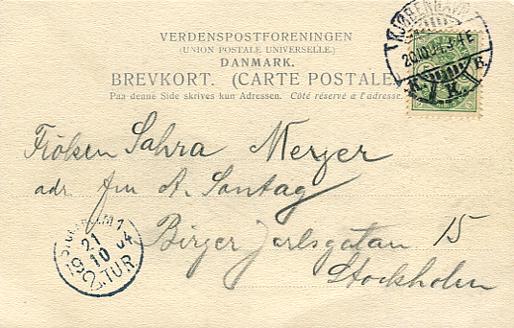 VERDENSPOSTFORENINGEN
(UNION POSTALE UNIVERSELLE.)
DANMARK.
BREVKORT. (CARTE POSTALE)
Paa denne Side skrives kun Adressen. Côté réservé à l'adresse.
KJØBENHAVN
K. K. B.
Fröken Sahra Meyer
adr fru A. Sontag
Birger Jarlsgatan 15
Stockholm
STOCKHOLM 1
21
10 04
2.TUR